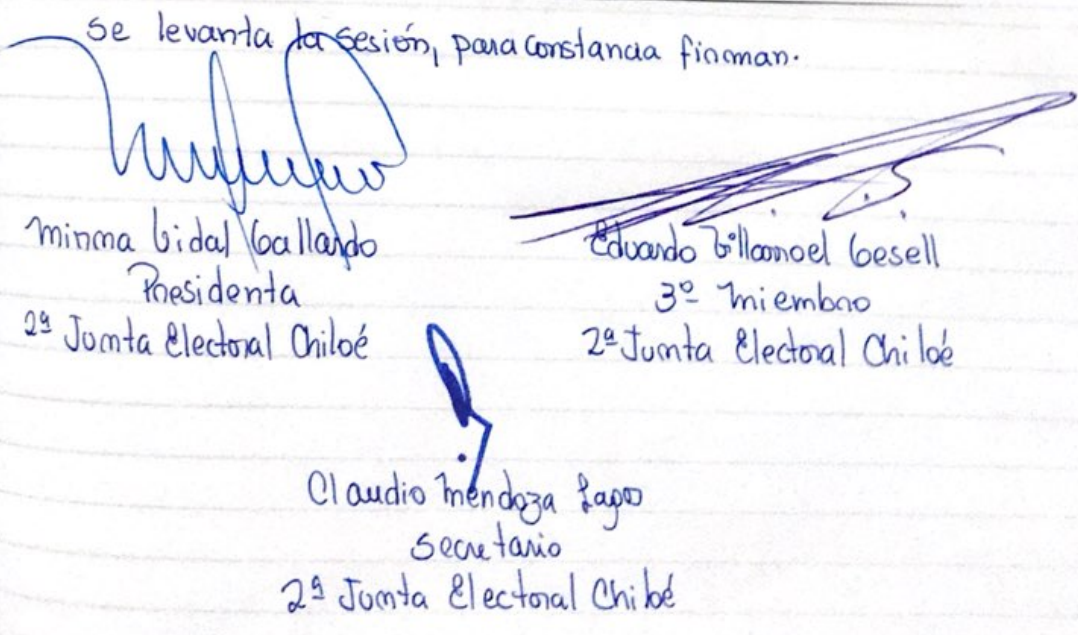 se levanta la sesión, para constancia firman.
Mirma Vidal Gallardo
Presidenta
2ª Junta Electoral Chiloé
Eduardo Villarroel Gesell
3º Miembro
2ª Junta Electoral Chiloé
Claudio Mendoza Lagos
Secretario
2ª Junta Electoral Chiloé